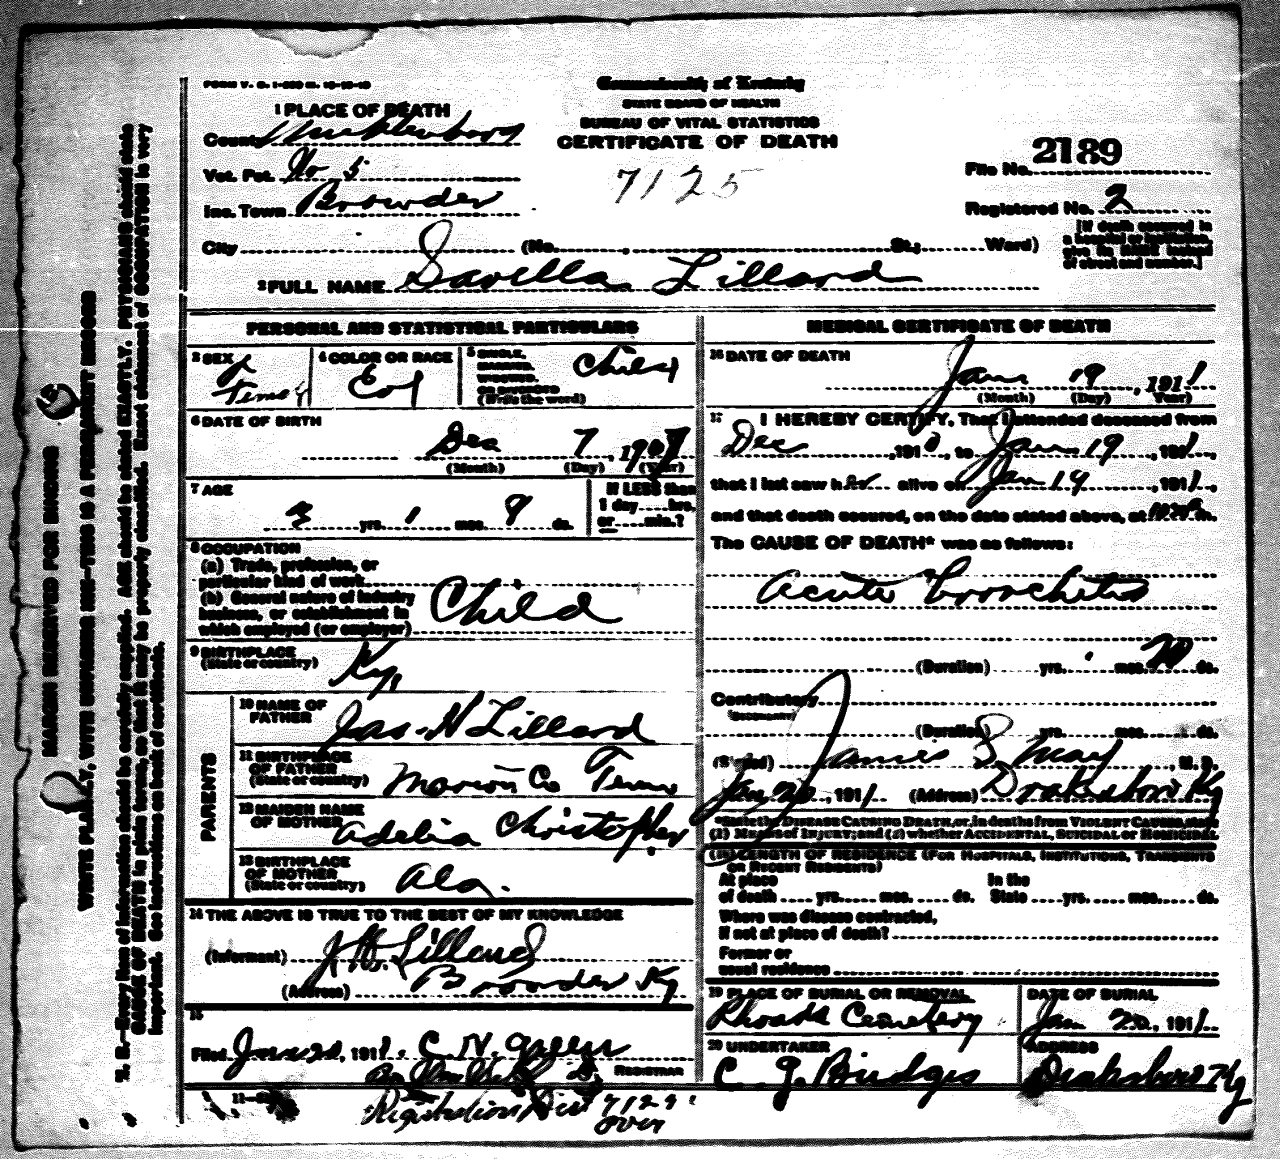 FORM V. S. 1
Commonwealth of Kentucky
STATE BOARD OF HEALTH
BUREAU OF VITAL STATISTICS
CERTIFICATE OF DEATH
7125
1 PLACE OF DEATH
County Muhlenberg
Vot. Pct. No 5
Inc. Town Browder
City (No. , St.; Ward)
File No. 2189
Registered No. 2
[If death occurred in
a hospital or institution
give its NAME instead
of street and number.]
2 FULL NAME Savella Lillard
PERSONAL AND STATISTICAL PARTICULARS
3 SEX
4 COLOR OR RACE Col
5 SINGLE,
MARRIED,
WIDOWED,
OR DIVORCED
(Write the word) Child
6 DATE OF BIRTH
Dec 7, 1907
(Month) (Day) (Year)
7 AGE
3 yrs. 1 mos. 9 ds.
If LESS than
1 day hrs.
or min.?
8 OCCUPATION
(a) Trade, profession, or
particular kind of work
(b) General nature of industry
business, or establishment in
which employed (or employer)
Child
9 BIRTHPLACE
(State or country) Ky,
PARENTS
10 NAME OF
FATHER Jas. H Lillard
11 BIRTHPLACE
OF FATHER
(State or country) Marion Co Tenn
12 MAIDEN NAME
OF MOTHER Adelia Christopher
13 BIRTHPLACE
OF MOTHER
(State or country) Ala.
14 THE ABOVE IS TRUE TO THE BEST OF MY KNOWLEDGE
(Informant) J. H. Lillard
(Address) Browder Ky
15
Filed Jan 20, 1911. C. N. Green
REGISTRAR
Registration Dist 7122
over
MEDICAL CERTIFICATE OF DEATH
16 DATE OF DEATH
Jan 19, 1911
(Month) (Day) (Year)
17 I HEREBY CERTIFY, That I attended deceased from
Dec , 191 , to Jan 19, 1911,
that I last saw her alive on Jan 19, 1911,
and that death occured, on the date stated above, at m.
The CAUSE OF DEATH* was as follows:
Acute Bronchitis
(Duration) yrs. mos. 20 ds.
Contributory
(SECONDARY)
(Duration) yrs. mos. ds.
(Signed) James S. May, M. D.
Jan 20, 1911 (Address) Drakesboro Ky
*State the DISEASE CAUSING DEATH, or, in deaths from VIOLENT CAUSES, state
(1) MEANS OF INJURY; and (2) whether ACCIDENTAL, SUICIDAL or HOMICIDAL
18 LENGTH OF RESIDENCE (FOR HOSPITALS, INSTITUTIONS, TRANSIENTS
OR RECENT RESIDENTS)
At place In the
of death yrs. mos. ds. State yrs. mos. ds.
Where was disease contracted,
If not at place of death?
Former or
usual residence
19 PLACE OF BURIAL OR REMOVAL
Rhoads Cemetery
DATE OF BURIAL
Jan 20, 1911
20 UNDERTAKER
C. G. Bridges
ADDRESS
Drakesboro Ky
MARGIN RESERVED FOR BINDING
WRITE PLAINLY, WITH UNFADING INK—THIS IS A PERMANENT RECORD
N. B.—Every item of information should be carefully supplied. AGE should be stated EXACTLY. PHYSICIANS should state
CAUSE OF DEATH in plain terms, so that it may be properly classified. Exact statement of OCCUPATION is very
important. See instructions on back of certificate.